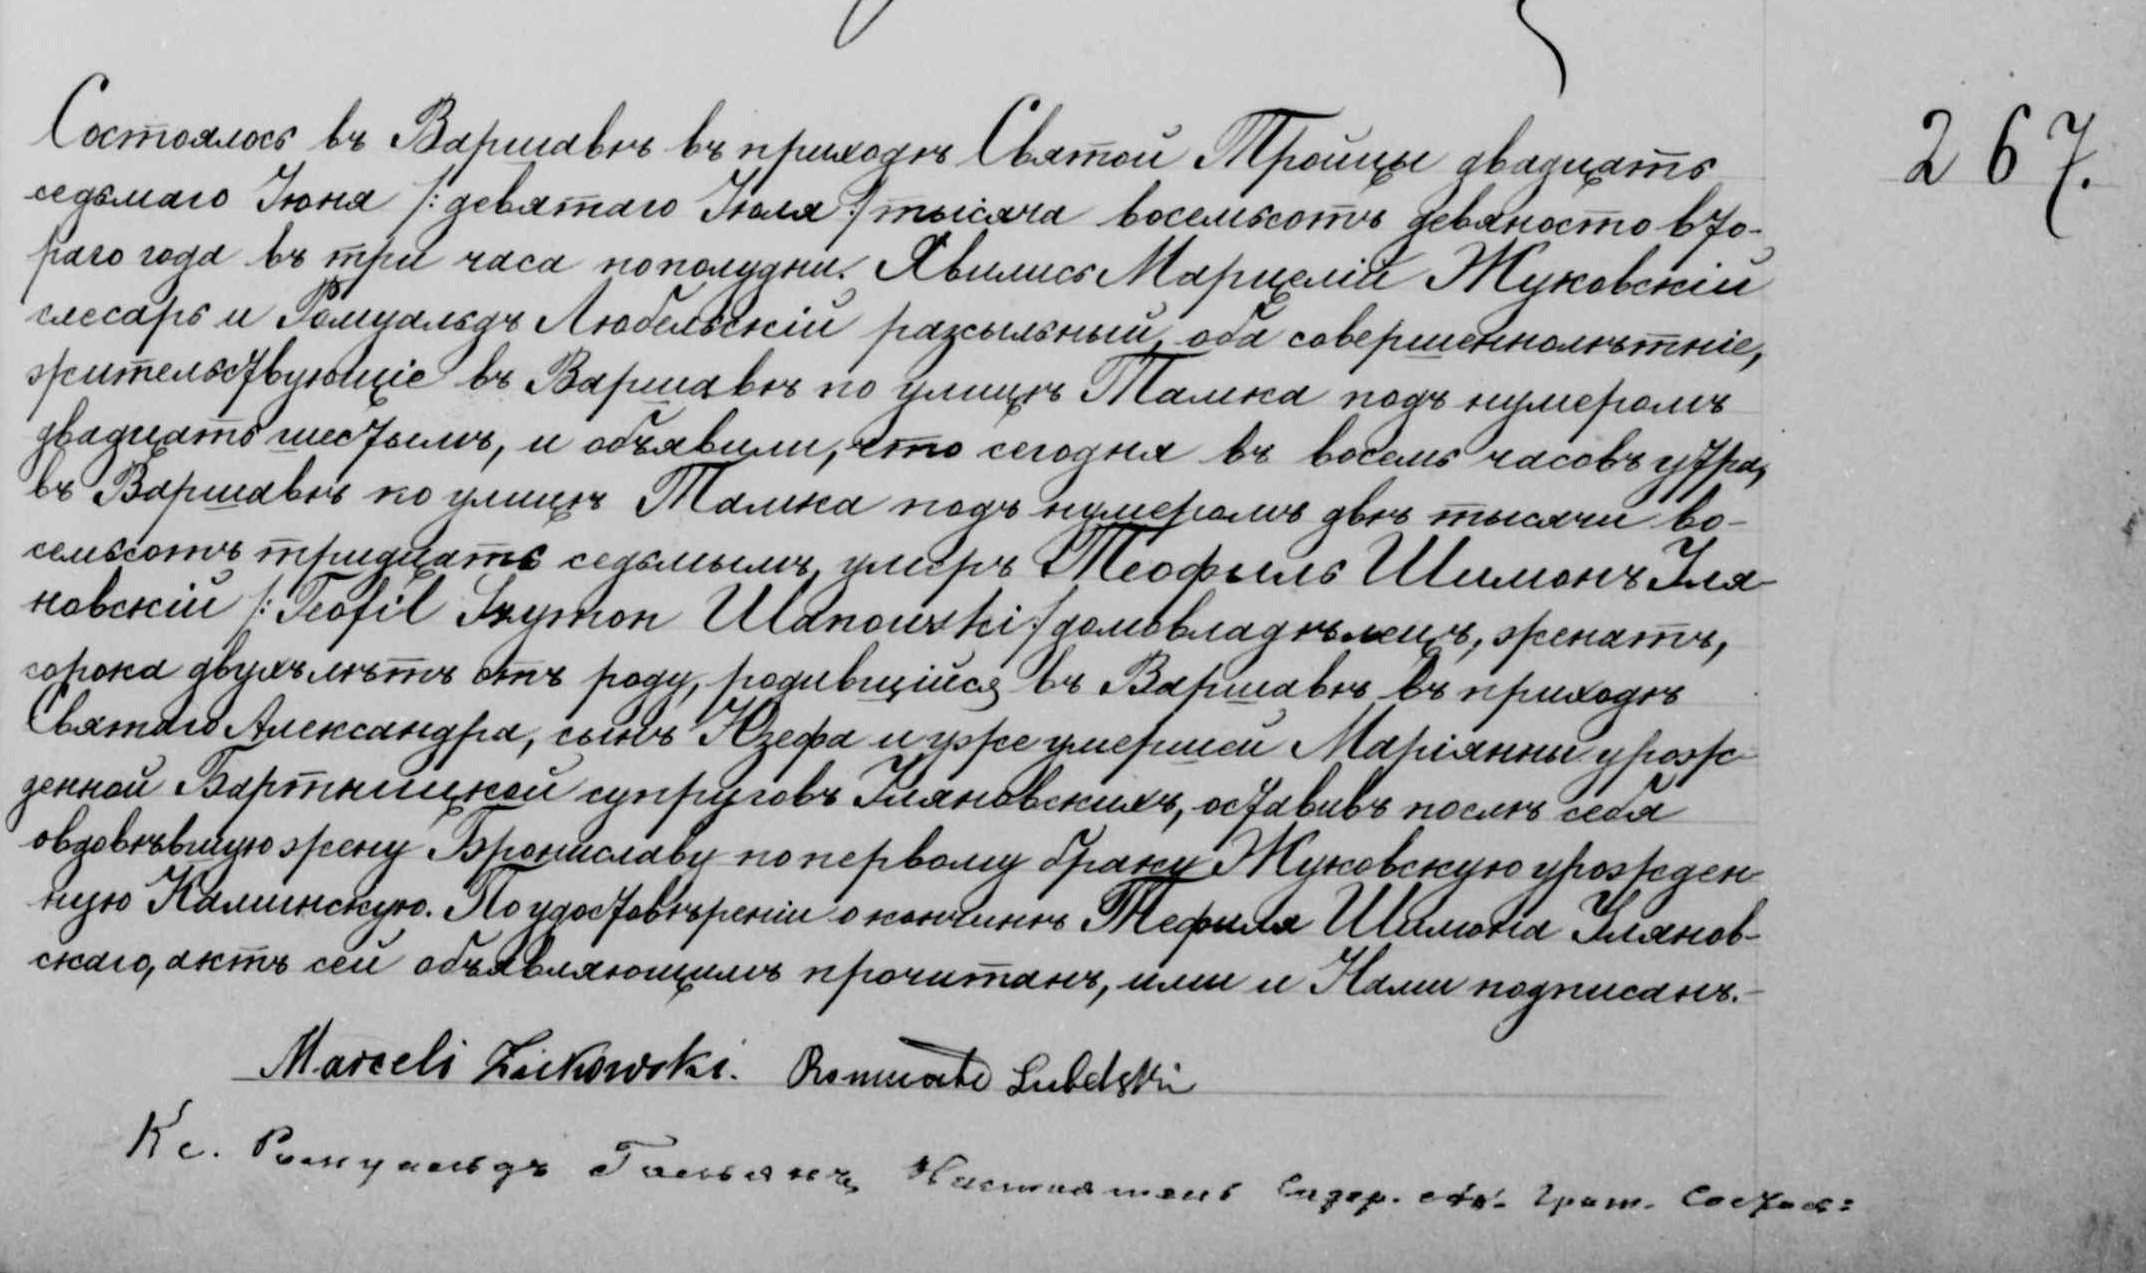 267.
Состоялось въ Варшавѣ въ приходѣ Святой Тройцы двадцать
седьмаго Іюня /: девятаго Іюля :/ тысяча восемьсотъ девяносто вто-
раго года въ три часа пополудни. Явились Марцелій Жуковскій
слесарь и Ромуальдъ Любельскій разсыльный, оба совершеннолѣтніе,
жительствующіе въ Варшавѣ по улицѣ Тамка подъ нумеромъ
двадцать шестымъ, и объявили, что сегодня въ восемь часовъ утра,
въ Варшавѣ по улицѣ Тамка подъ нумеромъ двѣ тысячи во-
семьсотъ тридцать седьмымъ, умеръ Теофиль Шимонъ Уля-
новскій /: Teofil Szymon Ulanowski :/ домовладѣлецъ, женатъ,
сорока двухъ лѣтъ отъ роду, родившійся въ Варшавѣ въ приходѣ
Святаго Александра, сынъ Юзефа и уже умершей Маріянны урож-
денной Бартницкой супруговъ Уляновскихъ, оставивъ послѣ себя
овдовѣвшую жену Брониславу по первому браку Жуковскую урожден-
ную Калинскую. По удостовѣреніи о кончинѣ Тефиля Шимона Улянов-
скаго, актъ сей объявляющимъ прочитанъ, ими и Нами подписанъ.-
Marceli Żukowski. Romuald Lubelski
Кс. Ромуальдъ Настоятель Содер. акт. граж. Состоя: